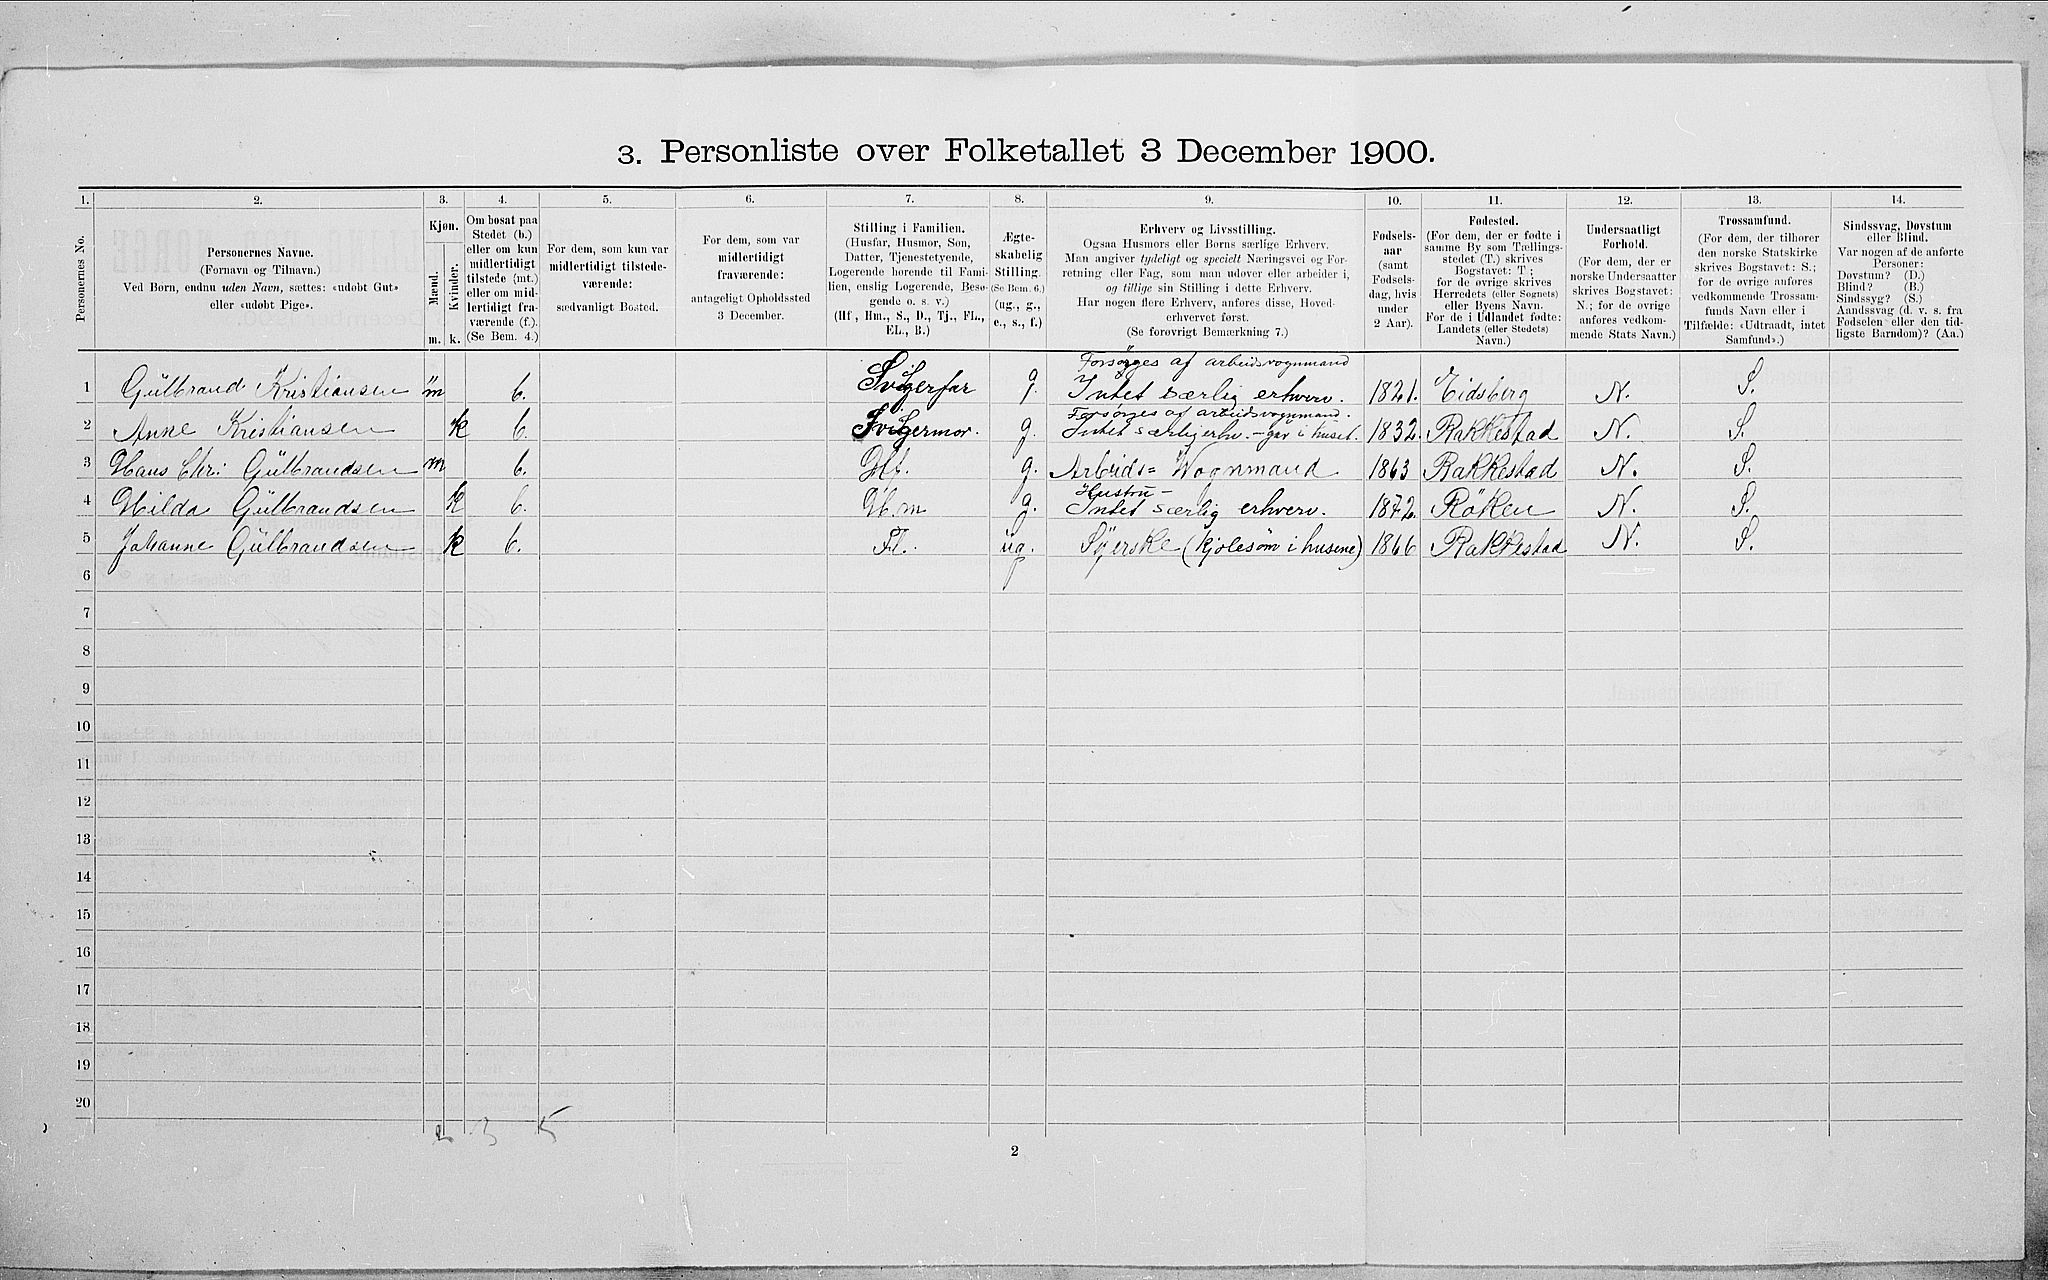 3. Personliste over Folketallet 3 December 1900.
1. 2. 3. 4. 5. 6. 7. 8. 9. 10. 11. 12. 13. 14.
Personernes No.
Personernes Navne.
(Fornavn og Tilnavn.)
Ved Børn, endnu uden Navn, sættes: «udøbt Gut»
eller «udøbt Pige».
Kjøn.
Mænd.
Kvinder.
m. k.
Om bosat paa
Stedet (b.)
eller om kun
midlertidigt
tilstede (mt.)
eller om mid-
lertidigt fra-
værende (f.).
(Se Bem. 4.)
For dem, som kun var
midlertidigt tilstede-
værende:
sædvanligt Bosted.
For dem, som var
midlertidigt
fraværende:
antageligt Opholdssted
3 December.
Stilling i Familien.
(Husfar, Husmor, Søn,
Datter, Tjenestetyende,
Logerende hørende til Fami-
lien, enslig Logerende, Besø-
gende o. s. v.)
(Hf, Hm., S., D., Tj., FL.,
EL., B.)
Ægte-
skabelig
Stilling.
(Se Bem. 6.)
(ug., g.,
e., s., f.)
Erhverv og Livsstilling.
Ogsaa Husmors eller Børns særlige Erhverv.
Man angiver tydeligt og specielt Næringsvei og For-
retning eller Fag, som man udøver eller arbeider i,
og tillige sin Stilling i dette Erhverv.
Har nogen flere Erhverv, anføres disse, Hoved-
erhvervet først.
(Se forøvrigt Bemærkning 7.)
Fødsels-
aar
(samt
Fødsels-
dag, hvis
under
2 Aar).
Fødested.
(For dem, der er fødte i
samme By som Tællings-
stedet (T.) skrives
Bogstavet: T ;
for de øvrige skrives
Herredets (eller Sognets)
eller Byens Navn.
For de i Udlandet fødte:
Landets (eller Stedets)
Navn.)
Undersaatligt
Forhold.
(For dem, der er
norske Undersaatter
skrives Bogstavet:
N.; for de øvrige
anføres vedkom-
mende Stats Navn.)
Trossamfund.
(For dem, der tilhører
den norske Statskirke
skrives Bogstavet: S.;
for de øvrige anføres
vedkommende Trossam-
funds Navn eller i
Tilfælde: «Udtraadt, intet
Samfund».)
Sindssvag, Døvstum
eller Blind.
Var nogen af de anførte
Personer:
Døvstum? (D.)
Blind? (B.)
Sindssyg? (S.)
Aandssvag (d. v. s. fra
Fødselen eller den tid-
ligste Barndom)? (Aa.)
Forsørges af arbeidsvognmand
1 Gulbrand Kristiansen m b. Svigerfar g. Intet særlig erhverv. 1821. Eidsberg N. S.
Forsørges af arbeidsvognmand.
2 Anne Kristiansen k b. Svigermor. g. Intet særlig erhv. – gav i huset. 1832. Rakkestad N. S.
3 Hans Chr: Gulbrandsen m b. Hf. g. Arbeids= Vognmand 1863 Rakkestad N. S.
Hustru –
4 Hilda Gulbrandsen k b. Hm g. Intet særlig erhverv. 1872. Røken N. S.
5 Johanne Gulbrandsen k b. Fl. ug. Syerske (kjolesøm i husene) 1866 Rakkestad N. S.
6
7
8
9
10
11
12
13
14
15
16
17
18
19
20
2 3 5
2